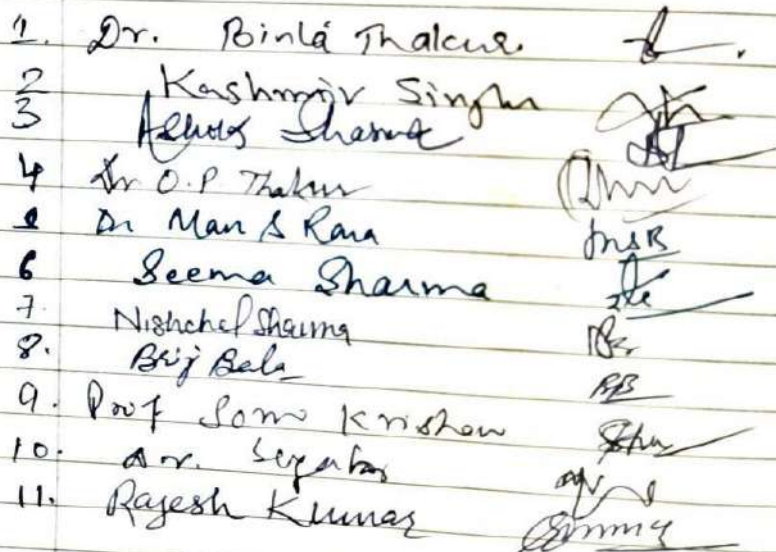 1. Dr. Binla Thakur.
2 Kashmir Singh
3 Ashok Sharma
4 Dr O.P. Thakur
Dr Man S Rana MSR
6 Seema Sharma
7. Nishchal Sharma
8. Brij Bala BB
9. Prof Som Krishan
10.
11. Rajesh Kumar